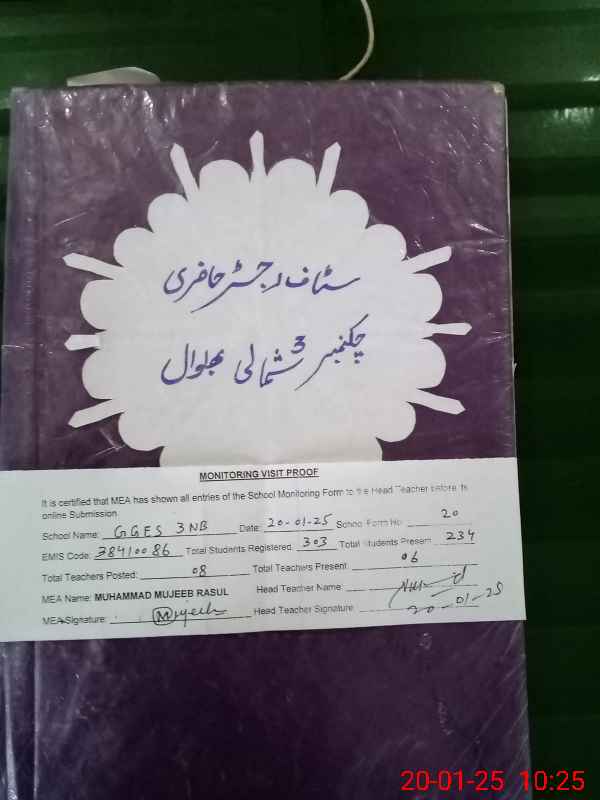 سٹاف رجسٹر حاضری
چکنمبر 3 شمالی بھلوال
MONITORING VISIT PROOF
It is certified that MEA has shown all entries of the School Monitoring Form to the Head Teacher before its
online Submission.
School Name: GGES 3NB Date: 20-01-25 School Form No. 20
EMIS Code: 38410086 Total Students Registered 303 Total Students Present 234
Total Teachers Posted: 08 Total Teachers Present 06
MEA Name: MUHAMMAD MUJEEB RASUL Head Teacher Name:
MEA Signature: Mujeeb Head Teacher Signature 20-01-25
20-01-25 10:25